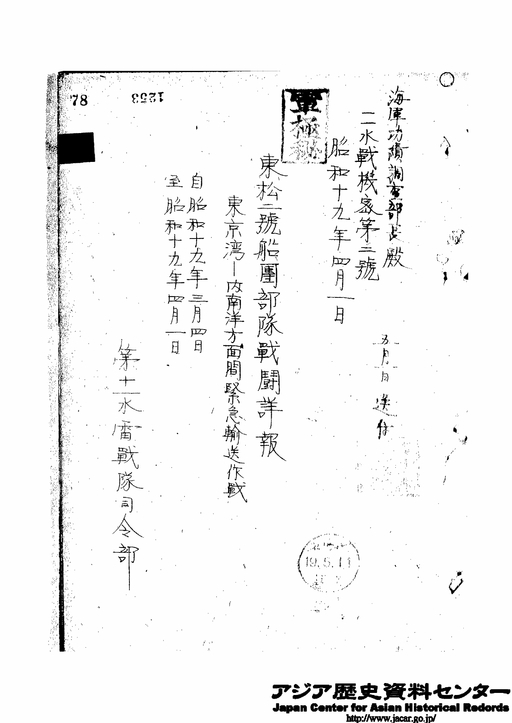 海軍功績調査部長殿
二水戦機密第三號
昭和十九年四月一日
軍極秘
五月 日送付
東松二號船團部隊戰鬪詳報
東京湾―内南洋方面間緊急輸送作戰
自昭和十九年三月四日
至昭和十九年四月一日
第十一水雷戰隊司令部
19.5.11
78
1253
アジア歴史資料センター
Japan Center for Asian Historical Records
http://www.jacar.go.jp/